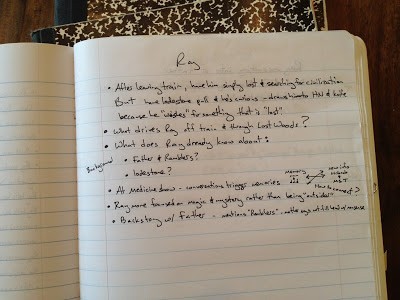 Ray
• After leaving train, have him simply lost & searching for civilization
But have lodestone pull & he's curious - draws him to HW & knife
because he "wishes" for something that is "lost".
• What drives Ray off train & through Lost Woods?
• What does Ray already know about:
Background
• Father & Ramblers?
• lodestone?
• At Medicine show - conversations trigger memories
memory
How to connect?
• Ray more focused on magic & mystery rather than being "outsider"
• Backstory w/ Father - mentions "Ramblers" -